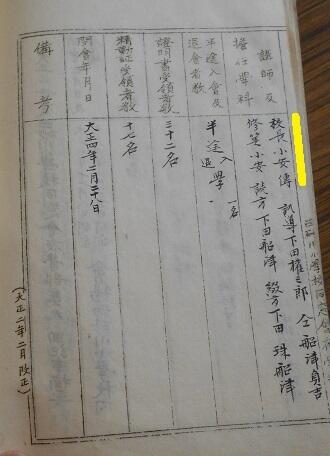 講師及
擔任學科
校長小安傳 訓導下田權三郎 仝船津負吉
修英小安 読方下田船津 綴方下田 珠船津
半途入會及
退會者数
半途入學 一名
退
證明書受領者数
三十二名
精勤証受領者数
十七名
閉會年月日
大正四年二月二十八日
備考
(大正二年二月改正)